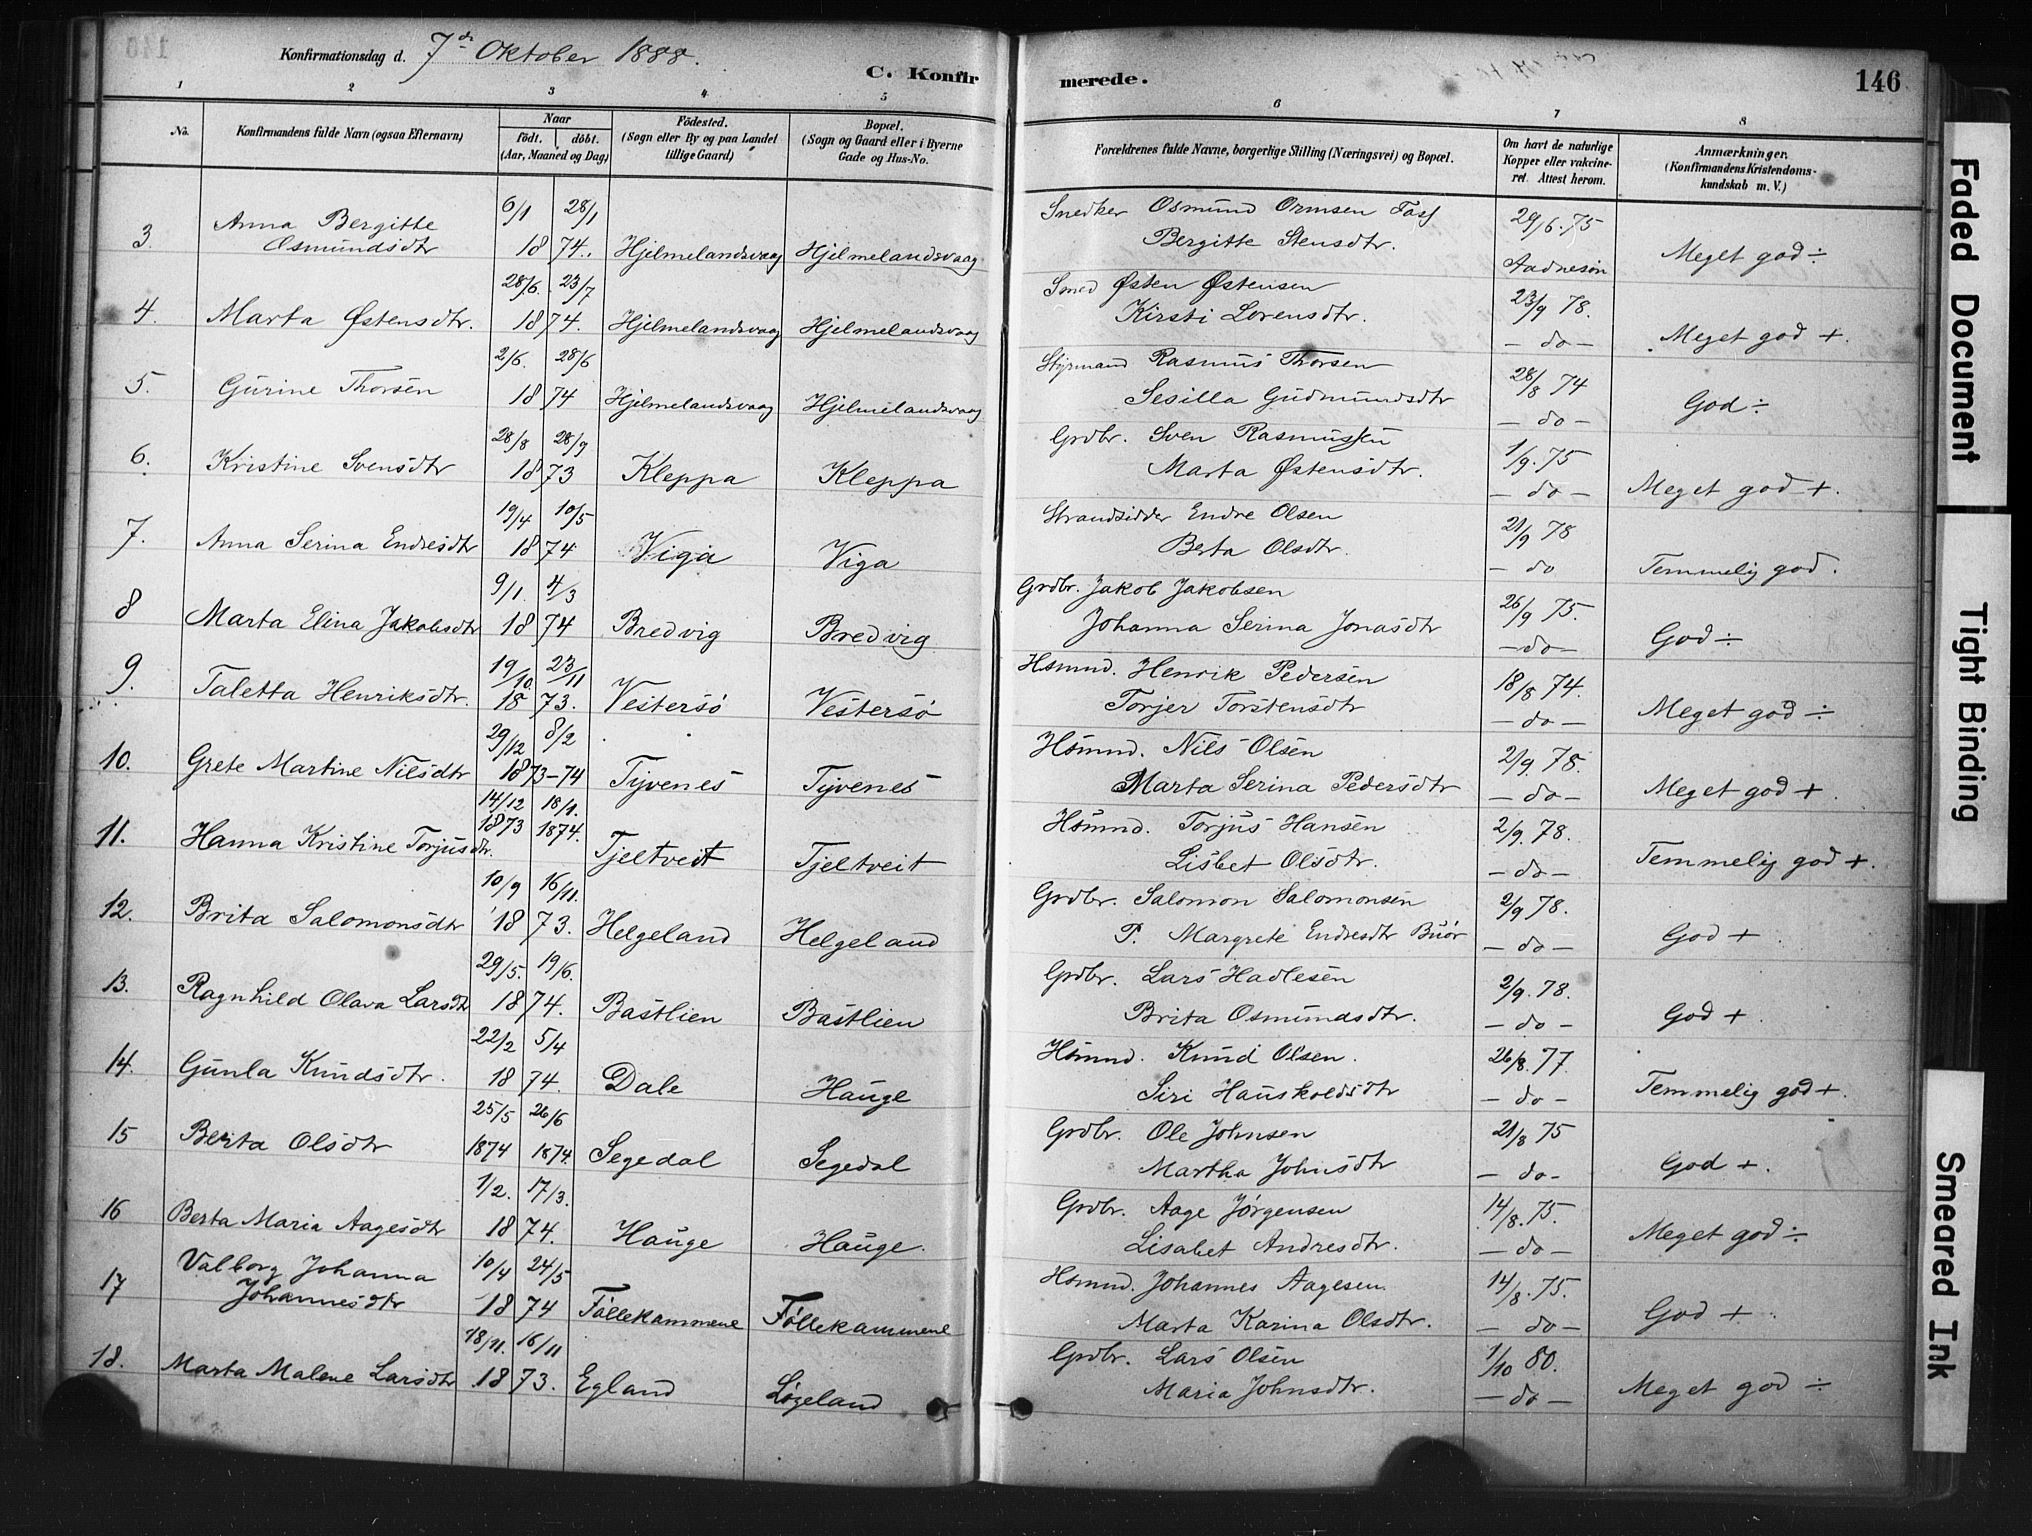 Konfirmationsdag d. 7de Oktober 1888.
C. Konfirmerede.
146
1 2 3 4 5 6 7 8
No.
Konfirmandens fulde Navn (ogsaa Efternavn)
Naar
födt. döbt.
(Aar, Maaned og Dag)
Födested.
(Sogn eller By og paa Landet
tillige Gaard)
Bopæl.
(Sogn og Gaard eller i Byerne
Gade og Hus-No.
Forældrenes fulde Navne, borgerlige Stilling (Næringsvei) og Bopæl.
Om havt de naturlige
Kopper eller vakcine-
ret. Attest herom.
Anmærkninger.
(Konfirmandens Kristendoms-
kundskab m. V.)
6/1 28/1 Snedker Osmund Ormsen 29/6. 75
3 Anna Bergitte
Osmundsdtr 18 74. Hjelmelandsvaag Hjelmelandsvaag Bergitte Stensdtr. Aadnesøn Meget god ÷
28/6. 23/7 Smed Østen Østensen 23/9 78.
4. Marta Østensdtr. 18 74. Hjelmelandsvaag Hjelmelandsvaag Kirsti Lorensdtr. – do – Meget god +.
2/6. 28/6 Styrmand Rasmus Thorsen 28/8 74
5. Gurine Thorsen 18 74 Hjelmelandsvaag Hjelmelandsvaag Sesilla Gudmundsdtr – do – God ÷
28/8 28/9 Grdbr. Sven Rasmussen 1/9. 75
6. Kristine Svensdtr 18 73 Kleppa Kleppa Marta Østensdtr. – do – Meget god +.
19/4 10/5 Strandsidder Endre Olsen 21/9 78
7. Anna Serina Endresdtr 18 74 Viga Viga Berta Olsdtr. – do Temmelig god.
9/1. 4/3 Grdbr. Jakob Jakobsen 26/9 75.
8 Marta Elina Jakobsdtr 18 74 Bredvig Bredvig Johanna Serina Jonasdtr – do – God ÷
19/10. 23/11 Hsmnd. Henrik Pedersen 18/8 74.
9. Taletta Henriksdtr. 18 73. Vestersø Vestersø Torjer Torstensdtr – do – Meget god ÷
29/12 8/2 Hsmnd. Nils Olsen 2/9. 78.
10. Grete Martine Nilsdtr 1873–74 Tyvenes Tyvenes Marta Serina Pedersdtr – do – Meget god +
14/12 18/1. Hsmnd. Torjus Hansen 2/9. 78.
11. Hanna Kristine Torjusdtr. 1873 1874. Tjeltveit Tjeltveit Lisbet Olsdtr. – do – Temmelig god +.
10/9 16/11. Grdbr. Salomon Salomonsen 2/9 78.
12. Brita Salomonsdtr 18 73. Helgeland Helgeland P. Margrete Endresdtr Buør – do – God +
29/5. 19/6. Grdbr. Lars Hadlesen 2/9. 78.
13. Ragnhild Olava Larsdtr 18 74. Bastlien Bastlien Brita Osmundsdtr. – do – God +.
22/2 5/4 Hsmnd. Knud Olsen. 26/8. 77.
14. Gunla Knudsdtr. 18 74. Dale Hauge Siri Hauskoldsdtr – do – Temmelig god +.
25/5 26/6 Grdbr. Ole Johnsen 21/8 75
15 Berta Olsdtr 1874 1874. Segedal Segedal Martha Johnsdtr – do – God +.
1/2. 17/3. Grdbr. Aage Jørgensen 14/8. 75.
16 Berta Maria Aagesdtr 18 74. Hauge Hauge. Lisabet Andresdtr. – do – Meget god ÷
10/4 24/5 Hsmnd. Johannes Aagesen 14/8. 75.
17 Valborg Johanna
Johannesdtr 18 74 Føllekammene Føllekammene Marta Karina Olsdtr. – do – God +.
18/11. 16/11 Grdbr. Lars Olsen 1/10 80.
18. Marta Malene Larsdtr 18 73. Egland Løgeland Maria Johnsdtr. – do – Meget god ÷
Faded Document
Tight Binding
Smeared Ink